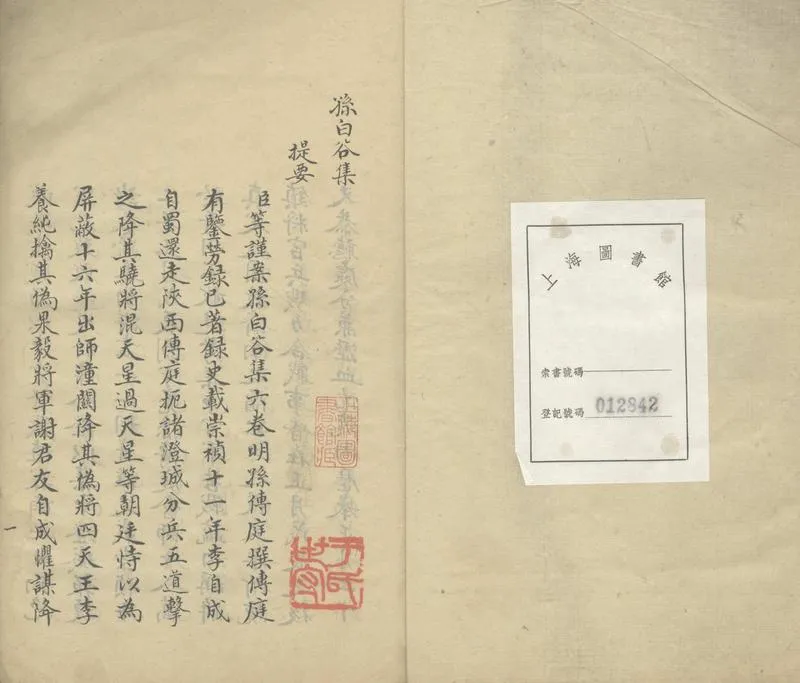 孫白谷集
提要
臣等謹案孫白谷集六卷明孫傳庭撰傳庭
有鑒勞録已著録史載崇禎十一年李自成
自蜀還走陜西傳庭扼諸澄城分兵五道擊
之降其驍將混天星過天星等朝廷恃以為
屏蔽十六年出師潼關降其偽將四天王李
養純擒其偽果毅將軍謝君友自成懼謀降
一
上海圖書館
索書號碼
登記號碼 012842
上海圖書館藏